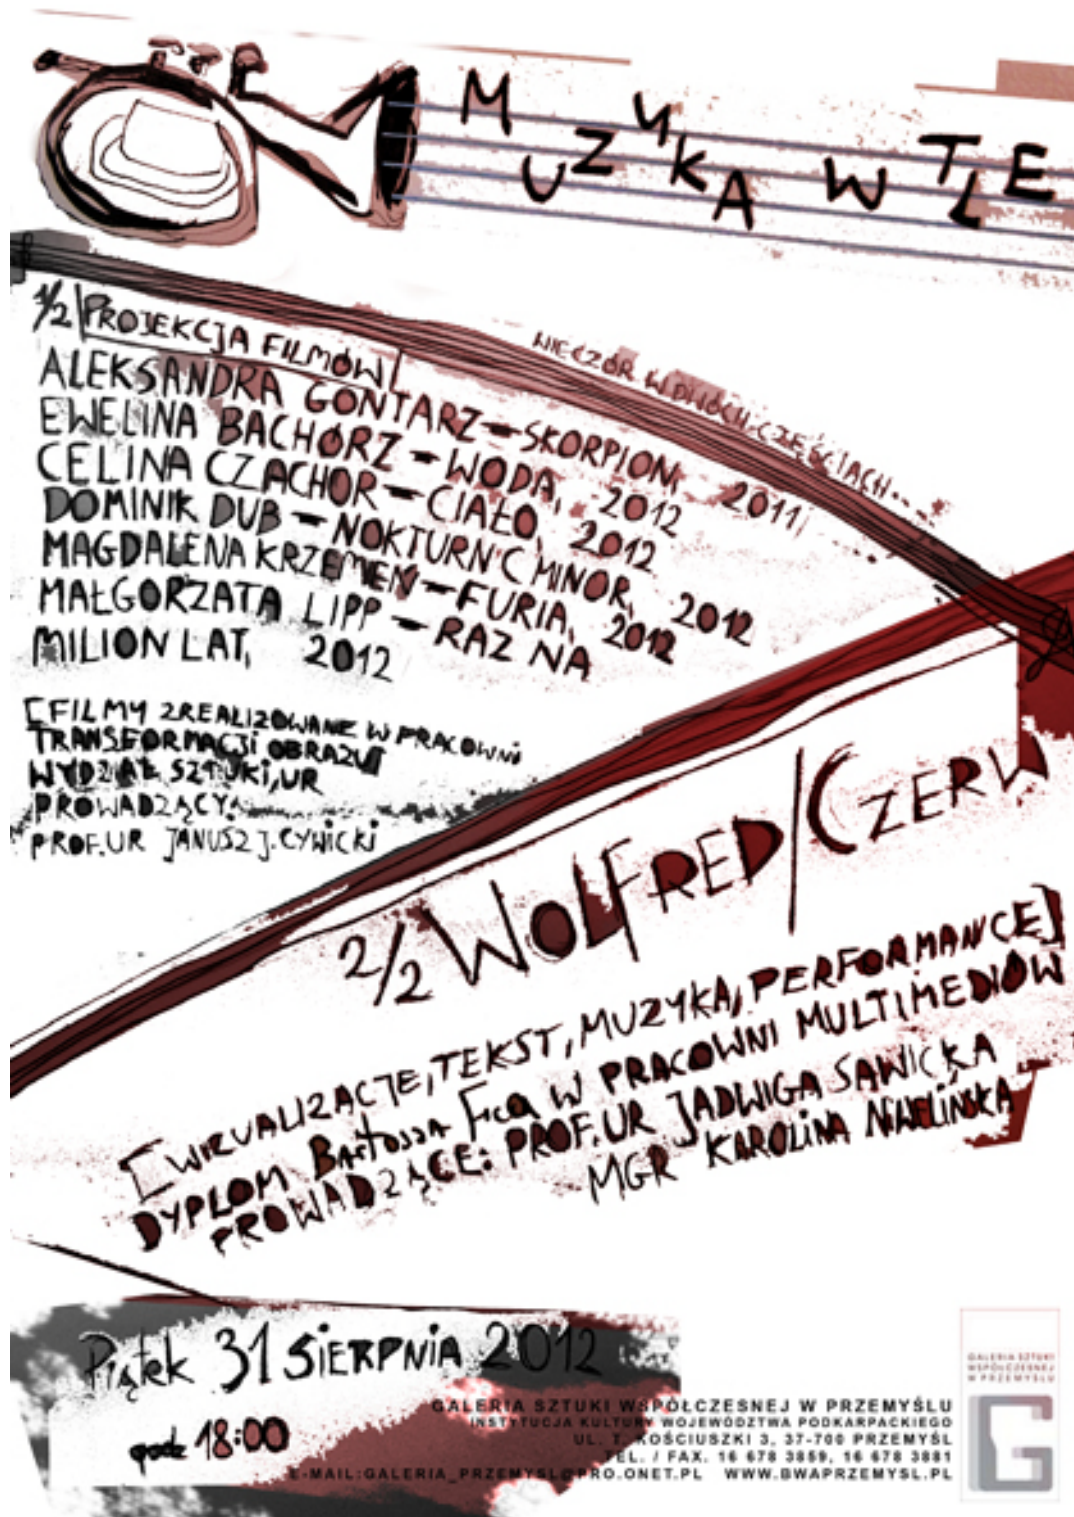 MUZYKA W TLE
WIECZÓR W DWÓCH CZĘŚCIACH...
1/2 PROJEKCJA FILMÓW
ALEKSANDRA GONTARZ - SKORPION, 2011,
EWELINA BACHÓRZ - WODA, 2012
CELINA CZACHOR - CIAŁO, 2012
DOMINIK DUB - NOKTURN C MINOR, 2012
MAGDALENA KRZEMIEŃ - FURIA, 2012
MAŁGORZATA LIPP - RAZ NA
MILION LAT, 2012
[FILMY ZREALIZOWANE W PRACOWNI
TRANSFORMACJI OBRAZU]
WYDZIAŁ SZTUKI, UR
PROWADZĄCY:
PROF. UR JANUSZ J. CYWICKI
2/2 WOLFRED/CZERW
[WIZUALIZACJE, TEKST, MUZYKA, PERFORMANCE]
DYPLOM Bartosza W PRACOWNI MULTIMEDIÓW
PROWADZĄCE: PROF. UR JADWIGA SAWICKA
MGR KAROLINA NIWELIŃSKA
Piątek 31 SIERPNIA 2012
godz 18:00
GALERIA SZTUKI WSPÓŁCZESNEJ W PRZEMYŚLU
INSTYTUCJA KULTURY WOJEWÓDZTWA PODKARPACKIEGO
UL. T. KOŚCIUSZKI 3, 37-700 PRZEMYŚL
TEL. / FAX. 16 678 3859, 16 678 3881
E-MAIL:GALERIA_PRZEMYSL@PRO.ONET.PL WWW.BWAPRZEMYSL.PL
GALERIA SZTUKI
WSPÓŁCZESNEJ
W PRZEMYŚLU
G